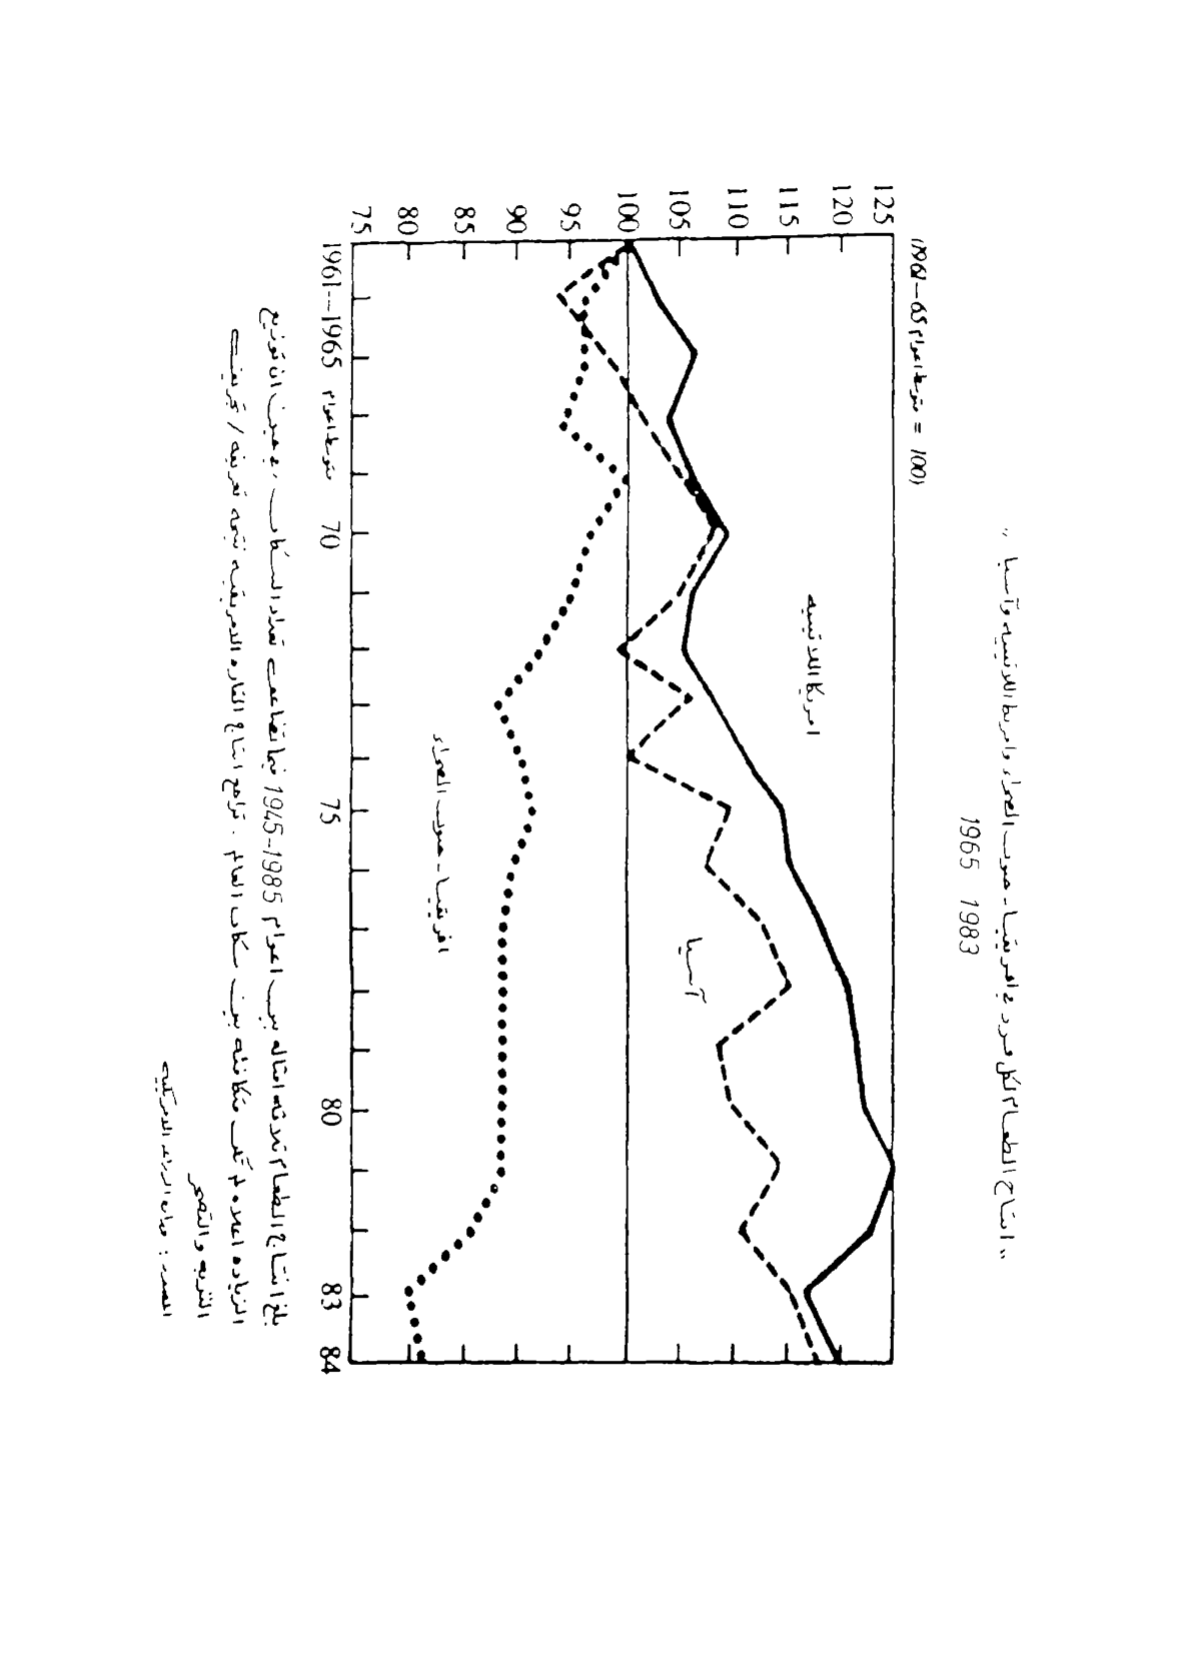 „ انتاج الطعام لكل فرد في افريقيا - جنوب الصحراء وامريكا اللاتينيه وآسيا „
1965 1983
(1961-65 متوسط اعوام = 100)
125
120
115
110
105
100
95
90
85
80
75
امريكا اللاتينيه
آسيا
افريقيا - جنوب الصحراء
1961--1965 متوسط اعوام
70
75
80
83
84
بلغ انتاج الطعام ثلاثه امثاله بين اعوام 1945-1985 فيما تضاعف تعداد السكان، في حين ان توزيع
الزياده اعلاه لم تكن متكافئه بين سكان العالم. تراجع انتاج القاره الافريقيه نتيجه تعريه / تجريف
التربه والتصحر
المصدر: الزراعه الامريكيه